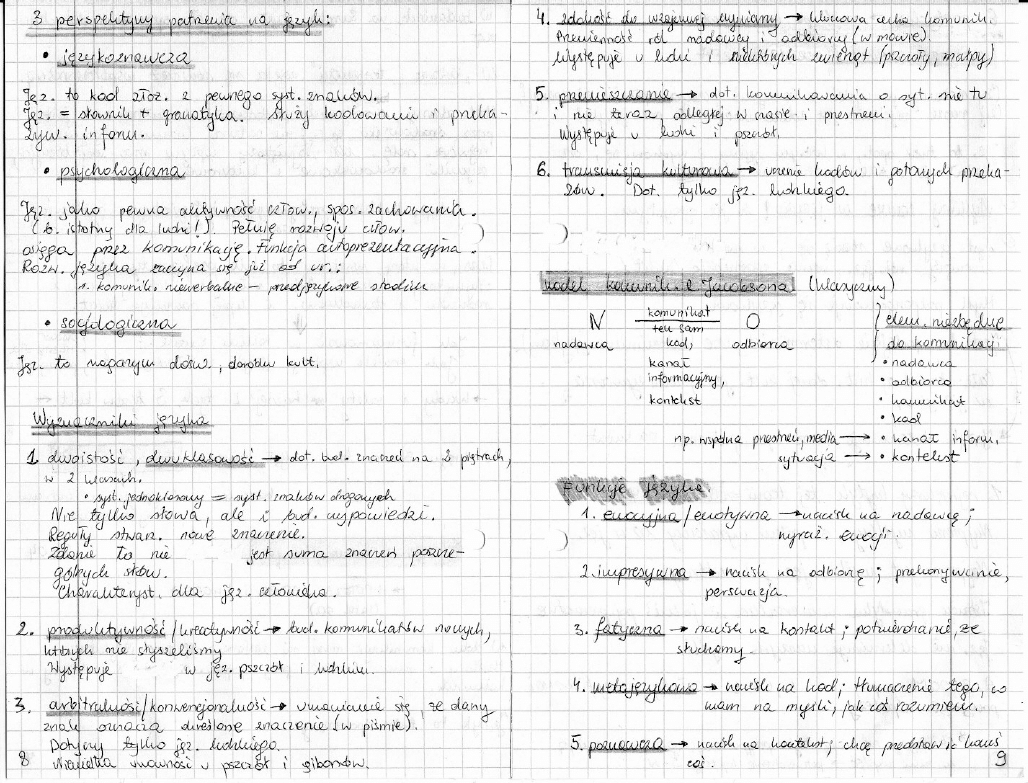 3 perspektywy patrzenia na język:
• językoznawcza
Jęz. to kod złoż. z pewnego syst. znaków.
Jęz = słownik + gramatyka. Służy kodowaniu i przeka-
zyw. inform.
• psychologiczna
Jęz. jako pewna aktywność człow., spos. zachowania.
(b. istotny dla ludzi!). Pełnię rozwoju człow.
osięga przez komunikację. Funkcja autoprezentacyjna.
Rozw. języka zaczyna się już od ur.:
1. komunik. niewerbalne – predjęzykowe stadium
• socjologiczna
Jęz. to dośw., dorobku kult.
Wyznaczniki języka
1 dwoistość, dwuklasowość → dot. bud. znaczeń na 2 piętrach,
w 2 klasach.
• syst. jednoklasowy = syst. znaków drogowych
Nie tylko słowa, ale i bud. wypowiedzi.
Reguły stwarz. nowe znaczenie.
Zdanie to nie jest suma znaczeń poszcze-
gólnych słów.
Charakteryst. dla jęz. człowieka.
2. produktywność/kreatywność → bud. komunikatów nowych,
których nie słyszeliśmy
Występuje w jęz. pszczół i ludzkim.
3. arbitralność/konwencjonalność → umawianie się, że dany
znak oznacza określone znaczenie (w piśmie).
Dotyczy tylko jęz. ludzkiego.
Niewielka umowność u pszczół i gibonów.
8
4. zdolność do wzajemnej wymiany → kluczowa cecha komunik.
Przemienność ról nadawcy i odbiorcy (w mowie).
Występuje u ludzi i niektórych zwierząt (pszczoły, małpy)
5. przemieszczanie → dot. komunikowania o syt. nie tu
i nie teraz, odległej w czasie i przestrzeni.
Występuje u ludzi i pszczół.
6. transmisja kulturowa → uczenie kodów i gotowych przeka-
zów. Dot. tylko jęz. ludzkiego.
Model komunik. R Jacobsona (klasyczny)
N komunikat O
nadawca ten sam odbiorca
kod,
kanał
informacyjny,
kontekst
elem. niezbędne
do komunikacji
• nadawca
• odbiorca
• komunikat
• kod
np. wspólna przestrzeń, media → • kanał inform.
sytuacja → • kontekst
Funkcje języka
1. emocyjna/emotywna → nacisk na nadawcę;
wyraż. emocji
2. impresywna → nacisk na odbiorcę; przekonywanie,
perswazja.
3. fatyczna → nacisk na kontakt; potwierdzanie, że
słuchamy.
4. metajęzykowa → nacisk na kod; tłumaczenie tego, co
mam na myśli, jak coś rozumiem.
5. poznawcza → nacisk na kontekst; chcę przedstawić komuś
coś.
9